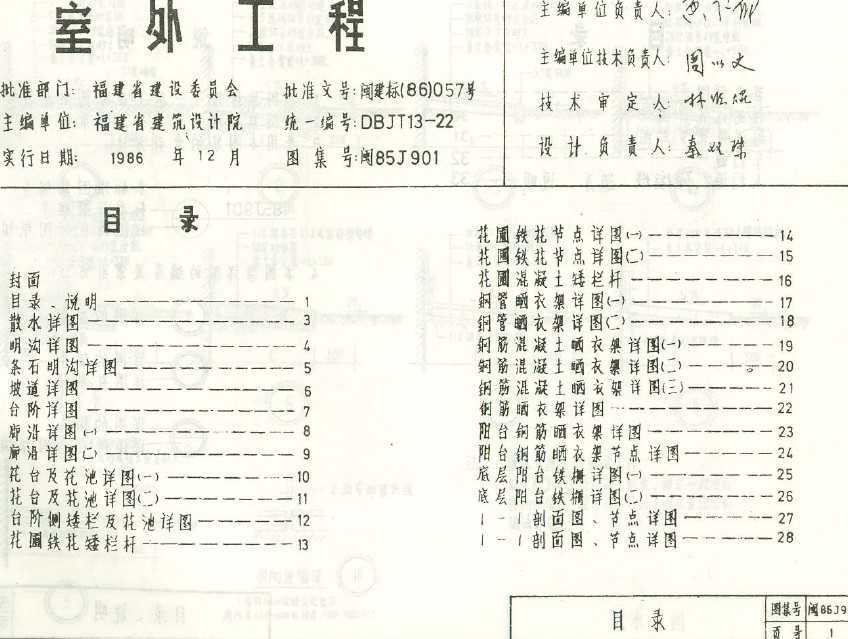 室外工程
批准部门: 福建省建设委员会 批准文号:闽建标(86)057号
主编单位: 福建省建筑设计院 统一编号:DBJT13-22
实行日期: 1986 年12月 图集号:闽85J901
主编单位负责人:
主编单位技术负责人: 周以文
技术审定人:
设计负责人:
目录
封面
目录、说明 1
散水详图 3
明沟详图 4
条石明沟详图 5
坡道详图 6
台阶详图 7
廊沿详图(一) 8
廊沿详图(二) 9
花台及花池详图(一) 10
花台及花池详图(二) 11
台阶侧矮栏及花池详图 12
花圃铁花矮栏杆 13
花圃铁花节点详图(一) 14
花圃铁花节点详图(二) 15
花圃混凝土矮栏杆 16
钢管晒衣架详图(一) 17
钢管晒衣架详图(二) 18
钢筋混凝土晒衣架详图(一) 19
钢筋混凝土晒衣架详图(二) 20
钢筋混凝土晒衣架详图(三) 21
钢筋晒衣架详图 22
阳台钢筋晒衣架详图 23
阳台钢筋晒衣架节点详图 24
底层阳台铁栅详图(一) 25
底层阳台铁栅详图(二) 26
1-1剖面图、节点详图 27
1-1剖面图、节点详图 28
目录
图集号 闽85J9
页号 1